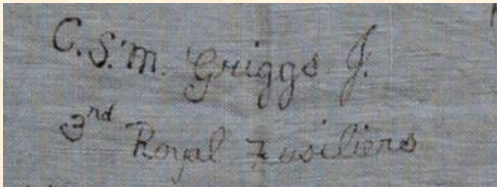 C.S.M. Griggs J.
3rd Royal Fusiliers